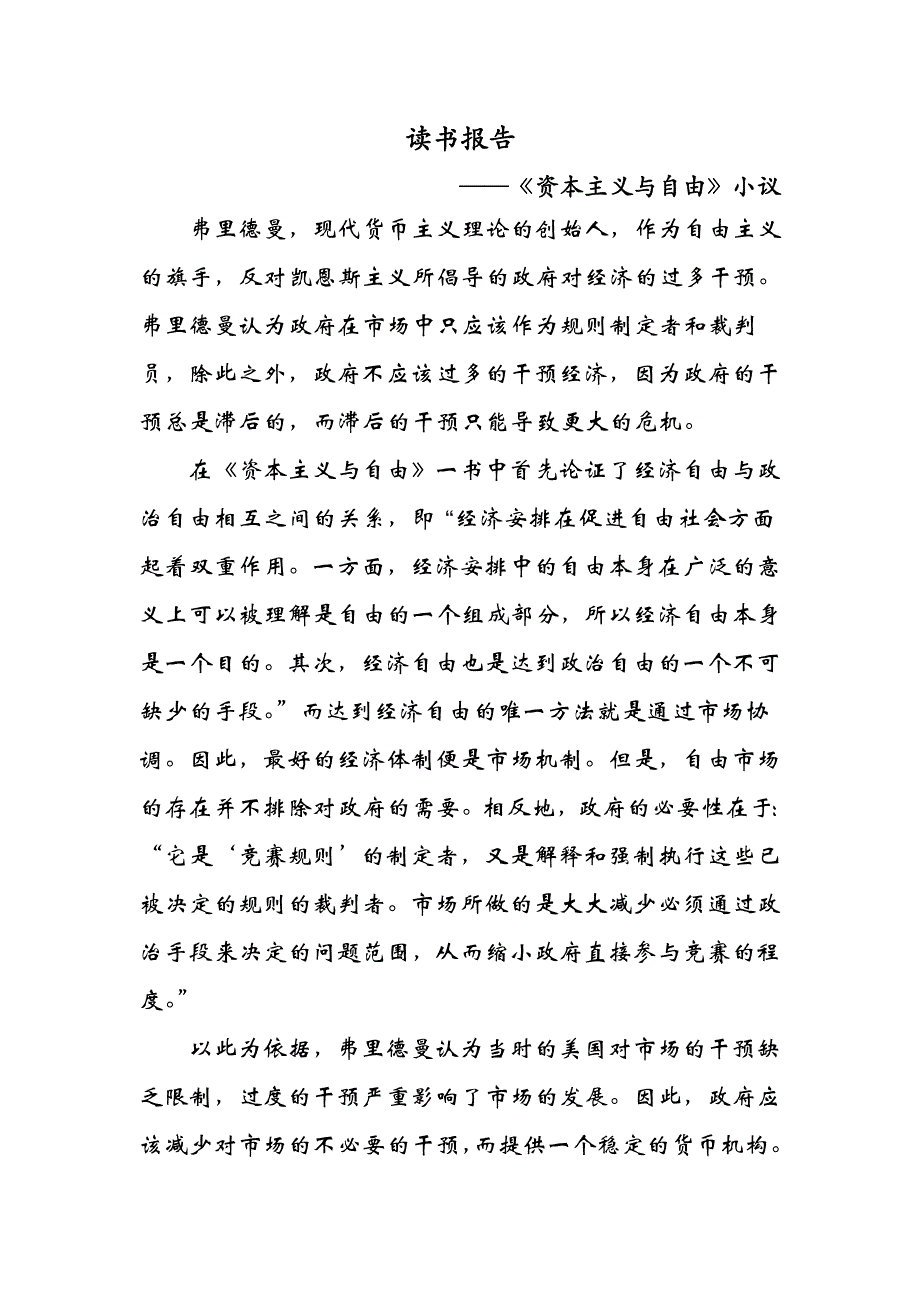 读书报告
——《资本主义与自由》小议
弗里德曼，现代货币主义理论的创始人，作为自由主义
的旗手，反对凯恩斯主义所倡导的政府对经济的过多干预。
弗里德曼认为政府在市场中只应该作为规则制定者和裁判
员，除此之外，政府不应该过多的干预经济，因为政府的干
预总是滞后的，而滞后的干预只能导致更大的危机。
在《资本主义与自由》一书中首先论证了经济自由与政
治自由相互之间的关系，即“经济安排在促进自由社会方面
起着双重作用。一方面，经济安排中的自由本身在广泛的意
义上可以被理解是自由的一个组成部分，所以经济自由本身
是一个目的。其次，经济自由也是达到政治自由的一个不可
缺少的手段。”而达到经济自由的唯一方法就是通过市场协
调。因此，最好的经济体制便是市场机制。但是，自由市场
的存在并不排除对政府的需要。相反地，政府的必要性在于：
“它是‘竞赛规则’的制定者，又是解释和强制执行这些已
被决定的规则的裁判者。市场所做的是大大减少必须通过政
治手段来决定的问题范围，从而缩小政府直接参与竞赛的程
度。”
以此为依据，弗里德曼认为当时的美国对市场的干预缺
乏限制，过度的干预严重影响了市场的发展。因此，政府应
该减少对市场的不必要的干预，而提供一个稳定的货币机构。